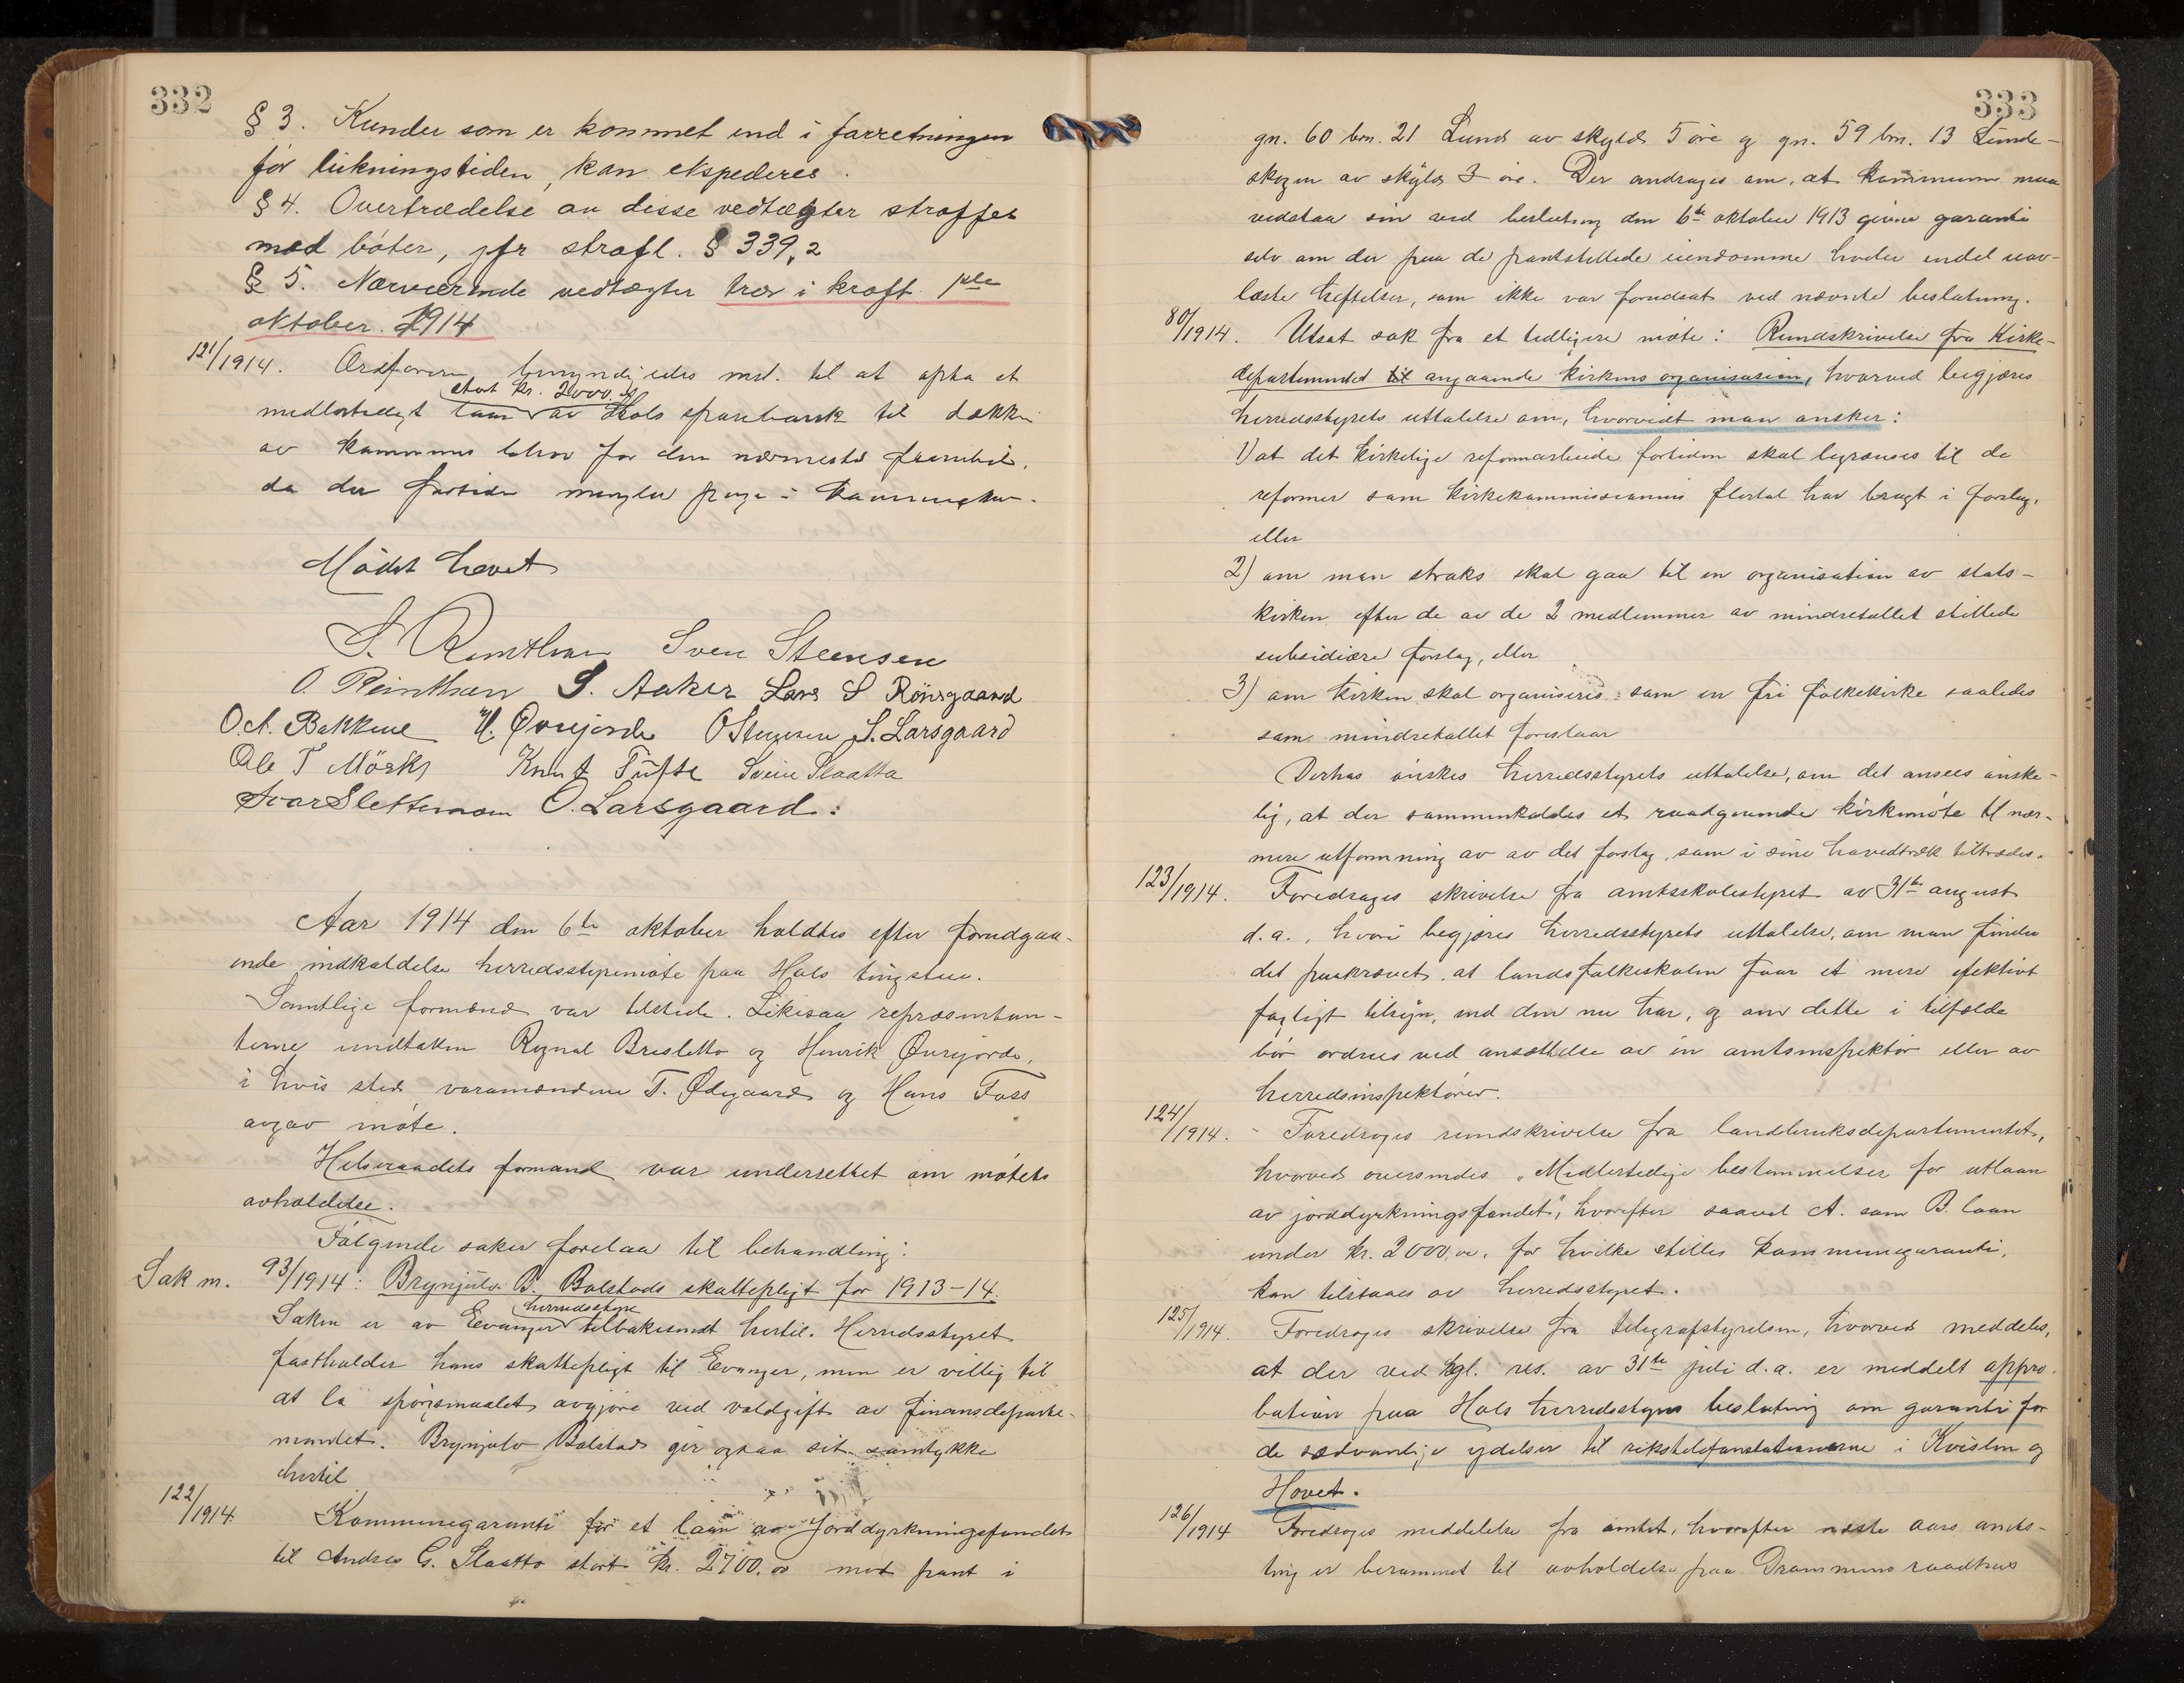 332
§ 3. Kunder som er kommet ind i forretningen
før lukningstiden, kan ekspederes.
§ 4. Overtrædelse av disse vedtægter straffes
med bøter, jfr strafl. § 339,2
§ 5. Nærværende vedtægter træ i kraft 1ste
oktober. 1914
121/1914. Ordføreren bemyndiges med. til at opta et
stort kr. 2000,00
midlertidigt laan av Hols sparebank til dækken
av kommunens behov for den nærmeste fremtid,
da der fortiden mangler penge i kommunekas-
Mødet hævet
S. Rimthun Sven Steensen
O. Reinthun S. Aaker Lars S Rönsgaard
O.A. Bakkene H. Øvrejorde O Stensen S. Larsgaard
Ole T Mørk Knut Tufte Svein Slaatta
Ivar Slettemoen O. Larsgaard:
Aar 1914 den 6te oktober holdtes efter forudgaa-
ende indkaldelse herredsstyremøte paa Hols tingstue.
Samtlige formænd var tilstede. Likesaa repræsentan-
terne undtaken Ragnal Bresletto og Henrik Øvrejorde,
i hvis sted varamændene T. Ødegaard og Hans Foss
avgav møte.
Helseraadets formand var underrettet om møtets
avholdelse.
Følgende saker forelaa til behandling:
Sak m. 93/1914: Brynjulv B. Bolstads skattepligt for 1913-14.
herredsstyre
Saken er av Evanger tilbakesendt hertil. Herredsstyret
fastholder hans skattepligt til Evanger, men er villig til
at la spørgsmaalet avgjøre ved voldgift av finansdeparte-
mentet. Brynjulv Bolstad gir ogsaa sit samtykke
hertil
122/1914. Kommunegaranti for et laan av Jorddyrkningsfondet
til Andres G. Slaatto stort kr. 2700,00 mod pant i
333
gn. 60 brn. 21 Lund av skyld 5 øre og gn. 59 brn. 13 Lunde-
skogen av skyld 3 øre. Der andrages om, at kommunen maa
vedstaa sin ved beslutning den 6te oktober 1913 givne garanti
selv om der paa de pantstillede eiendomme hviler endel uav-
læste heftelser, som ikke var forudsat ved nævnte beslutning.
80/1914. Utsat sak fra et tidligere møte: Rundskrivelse fra Kirke-
departementet til angaaende kirkens organisasion, hvorved begjæres
herredsstyrets uttalelse om, hvorvidt man ønsker:
1) at det kirkelige reformarbeide fortiden skal begrænses til de
reformer som kirkekommissionens flertal har bragt i forslag,
eller
2) om man straks skal gaa til en organisation av stats-
kirken efter de av de 2 medlemmer av mindretallet stillede
subsidiære forslag, eller
3) om kirken skal organiseres som en fri folkekirke saaledes
som mindretallet foreslaar
Derhos ønskes herredsstyrets uttalelse, om det ansees ønske-
lig, at der sammenkaldes et raadgivende kirkemøte til nær-
mere utformning av av det forslag, som i sine hovedtræk tiltrædes.
123/1914. Foredrages skrivelse fra amtsskolestyret av 31te august
d.a., hvori begjæres herredsstyrets uttalelse, om man finder
det paakrævet at landsfolkeskolen faar et mere efektivt
fagligt tilsyn, end den nu har, og om dette i tilfælde
bør ordnes ved ansættelse av en amtsinspektør eller av
herredsinspektører.
124/1914. Foredrages rundskrivelse fra landbruksdepartementet,
hvorved oversendes "Midlertidige bestemmelser for utlaan
av jorddyrkningsfondet", hvorefter saavel A. som B. laan
under kr. 2000,00, for hvilke stilles kommunegaranti,
kan tilstaaes av herredsstyret.
125/1914. Foredrages skrivelse fra telegrafstyrelsen, hvorved meddeles,
at der ved kgl. res. av 31te juli d.a. er meddelt appro-
bation paa Hols herredsstyres beslutning om garanti for
de sedvanlige ydelser til rikstelefonstationerne i Kvislen og
Hovet.
126/1914 Foredrages meddelelse fra amtet, hvorefter næste aars amts-
ting er berammet til avholdelse paa Drammens raadhus